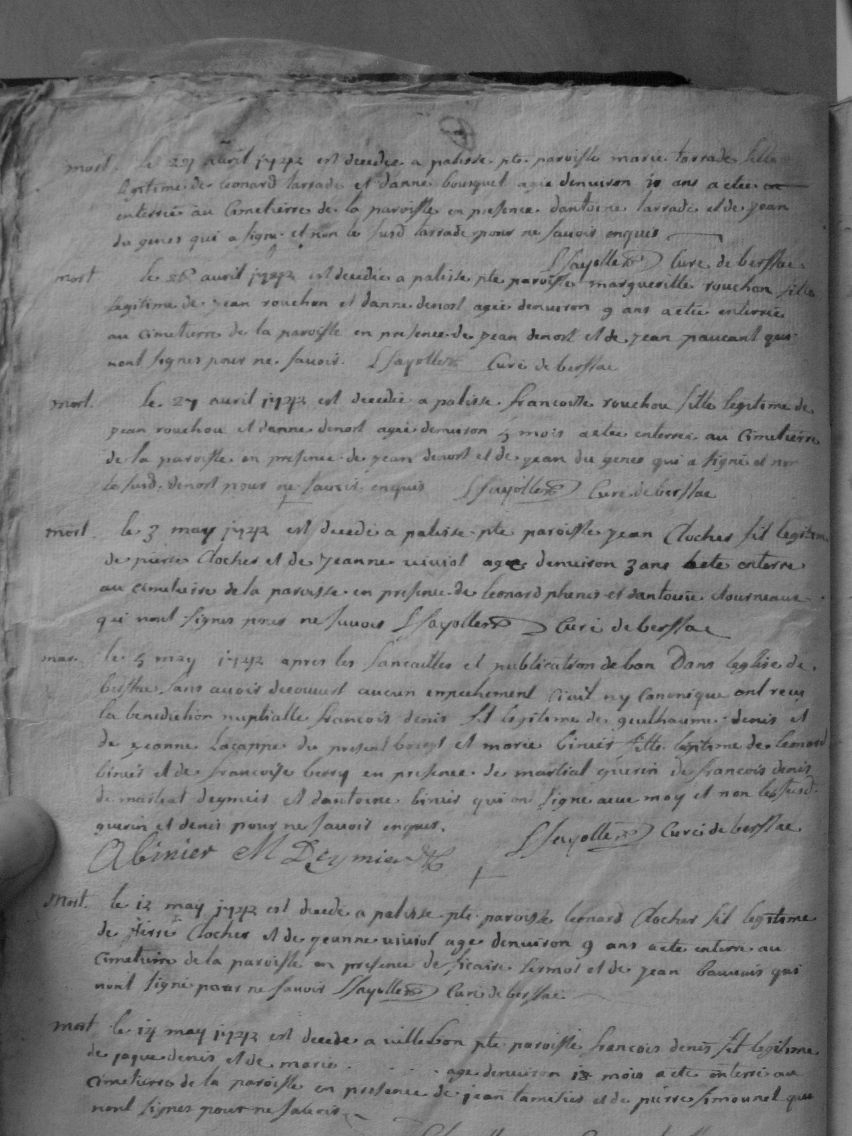 mort. le 24 avril 1742 est decedée a palisse pte paroisse marie larrade fille
legitime de leonard larrade et danne bousquet agée denuiron ans a etée
enterrée au Cimetierre de la paroisse en presence dantoine larrade et de jean
du genes qui a signe et non le susd larrade pour ne savoir enquis
Lfayolle Curé de berssac
mort le 26 avril 1742 est decedée a palisse pte paroisse margueritte rouchou fille
legitime de jean rouchou et danne denost agée denuiron 9 ans a etée enterrée
au cimetierre de la paroisse en presence de jean denost et de jean paucant qui
nont signes pour ne savoir. Lfayolle Curé de berssac
mort. le 27 avril 1742 est decedée a palisse francoisse rouchou fille legitime de
jean rouchou et danne denost agée denuiron 5 mois a etée enterrée au cimetierre
de la paroisse en presence de jean denost et de jean du genes qui a signé et non
le susd. denost pour ne savoir enquis Lfayolle Curé de berssac
mort. le 3 may 1742 est decedé a palisse pte paroisse jean Clocher fil legitime
de pierre Clocher et de jeanne uiuiol age denuiron 3 ans a ete enterre
au cimetuire de la paroisse en presence de leonard phenis et dantoine tourneaux
qui nont signes pour ne savoir Lfayolle Curé de berssac
mar. le 5 may 1742 apres les fiancailles et publication de ban Dans leglise de
berssac sans avoir decouvert aucun enpechement Civil ny Canonique ont reçu
la benediction nuptialle francois denis fil legitime de geulhaume denis et
de jeanne Lacappe du present bourgt et marie binies fille legitime de leonard
binies et de francoise berry en presence de martial guerin de francois denis
de martial deymies et dantoine binies qui ont signe avec moy et non les susd.
guerin et denis pour ne savoir enquis.
Lfayolle Curé de berssac
Abinier M Deymier
Mort. le 12 may 1742 est decedé a palisse pte paroisse leonard Clocher fil legitime
de pierre Clocher et de jeanne uiuiol age denuiron 9 ans a ete enterre au
Cimetuire de la paroisse en presence de sicaire sermot et de jean bauvais qui
nont signé pour ne savoir Lfayolle Curé de berssac
mort le 14 may 1742 est decede a villebon pte paroisse francois denis fil legitime
de jaque denis et de marie . . . . age denuiron 18 mois a ete enterre au
cimetierre de la paroisse en presence de jean tamesies et de pierre simounet qui
nont signes pour ne savoir